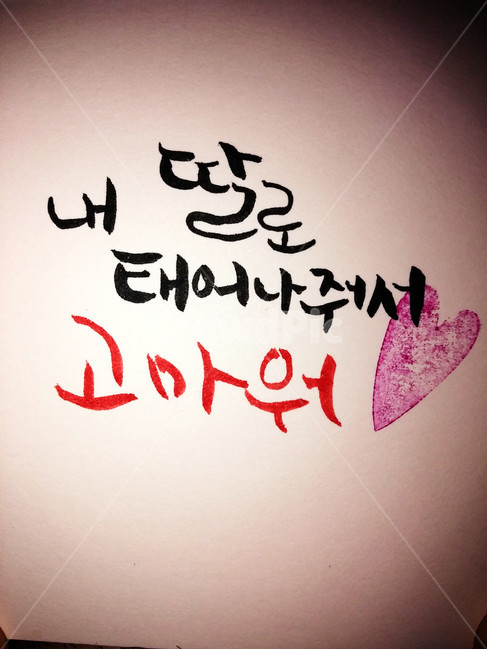 내 딸로
태어나줘서
고마워